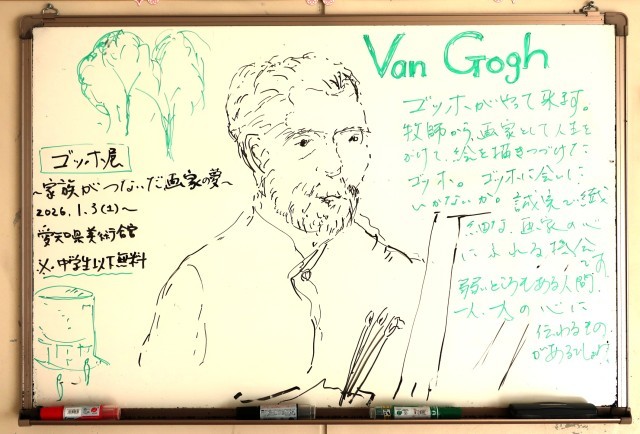 Van Gogh
ゴッホがやって来ます。
牧師から、画家として人生を
かけて、絵を描きつづけた
ゴッホ。ゴッホに会いに
いかないか。誠実で繊
細な、画家の心
にふれる機会です
弱いところもある人間、
一人一人の心に
伝わるもの
があるでしょう
ゴッホ展
~家族がつないだ画家の夢~
2026.1.3(土)~
愛知県美術館
※中学生以下無料